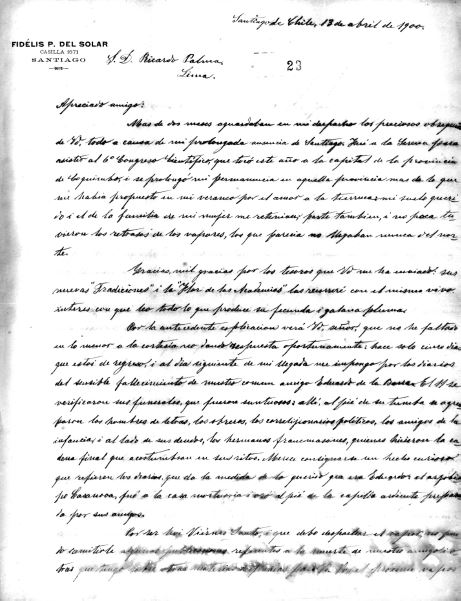 Santiago de Chile, 13 de abril de 1900.
FIDÉLIS P. DEL SOLAR
CASILLA 1671
SANTIAGO
S. D. Ricardo Palma,
Lima.
23
Apreciado amigo:
Mas de dos meses aguardaban en mi despacho los preciosos obsequios
de Vd, todo a causa de mi prolongada ausencia de Santiago. Fui a la Serena para
asistir al 6º Congreso Científico, que tocó este año a la capital de la provincia
de Coquimbo; i se prolongó mi permanencia en aquella provincia mas de lo que
me habia propuesto en mi veraneo por el amor a la tierruca: mi suelo queri-
do i el de la familia de mi mujer me retenian; parte tambien, i no poca tu-
vieron los retardos de los vapores, los que parecia no llegaban nunca del nor-
te.
Gracias, mil gracias por los tesoros que Vd me ha enviado: sus
nuevas "Tradiciones" i la "Flor de las Academias" las recorreré con el mismo vivo
interes con que leo todo lo que produce su fecunda i galana pluma.
Por la antecedente esplicacion verá Vd, señor, que no he faltado
en lo menor a la cortesía no dando respuesta oportunamente; hace solo cinco dias
que estoi de regreso, i al dia siguiente de mi llegada me impongo por los diarios
del sensible fallecimiento de nuestro comun amigo Eduardo de la Barra. El 11 se
verificaron sus funerales, que fueron suntuosos: allí, al pié de su tumba se agru-
paron los hombres de letras, los obreros, los correlijionarios políticos, los amigos de la
infancia; i al lado de sus deudos, los hermanos francmasones, quienes hicieron la ca-
dena final que acostumbran en sus ritos. Merece consignarse un hecho curioso
que refieren los diarios, que da la medida de lo querido que era Eduardo: el arzobis-
po Casanova, fué a la casa mortuoria i oró al pié de la capilla ardiente prepara-
da por sus amigos.
Por ser hoi Viérnes Santo, i que debo despachar el vapor, no pue-
do remitirle algunas publicaciones referentes a la muerte de nuestro amigo i o-
tras que tengo sobre otras materias